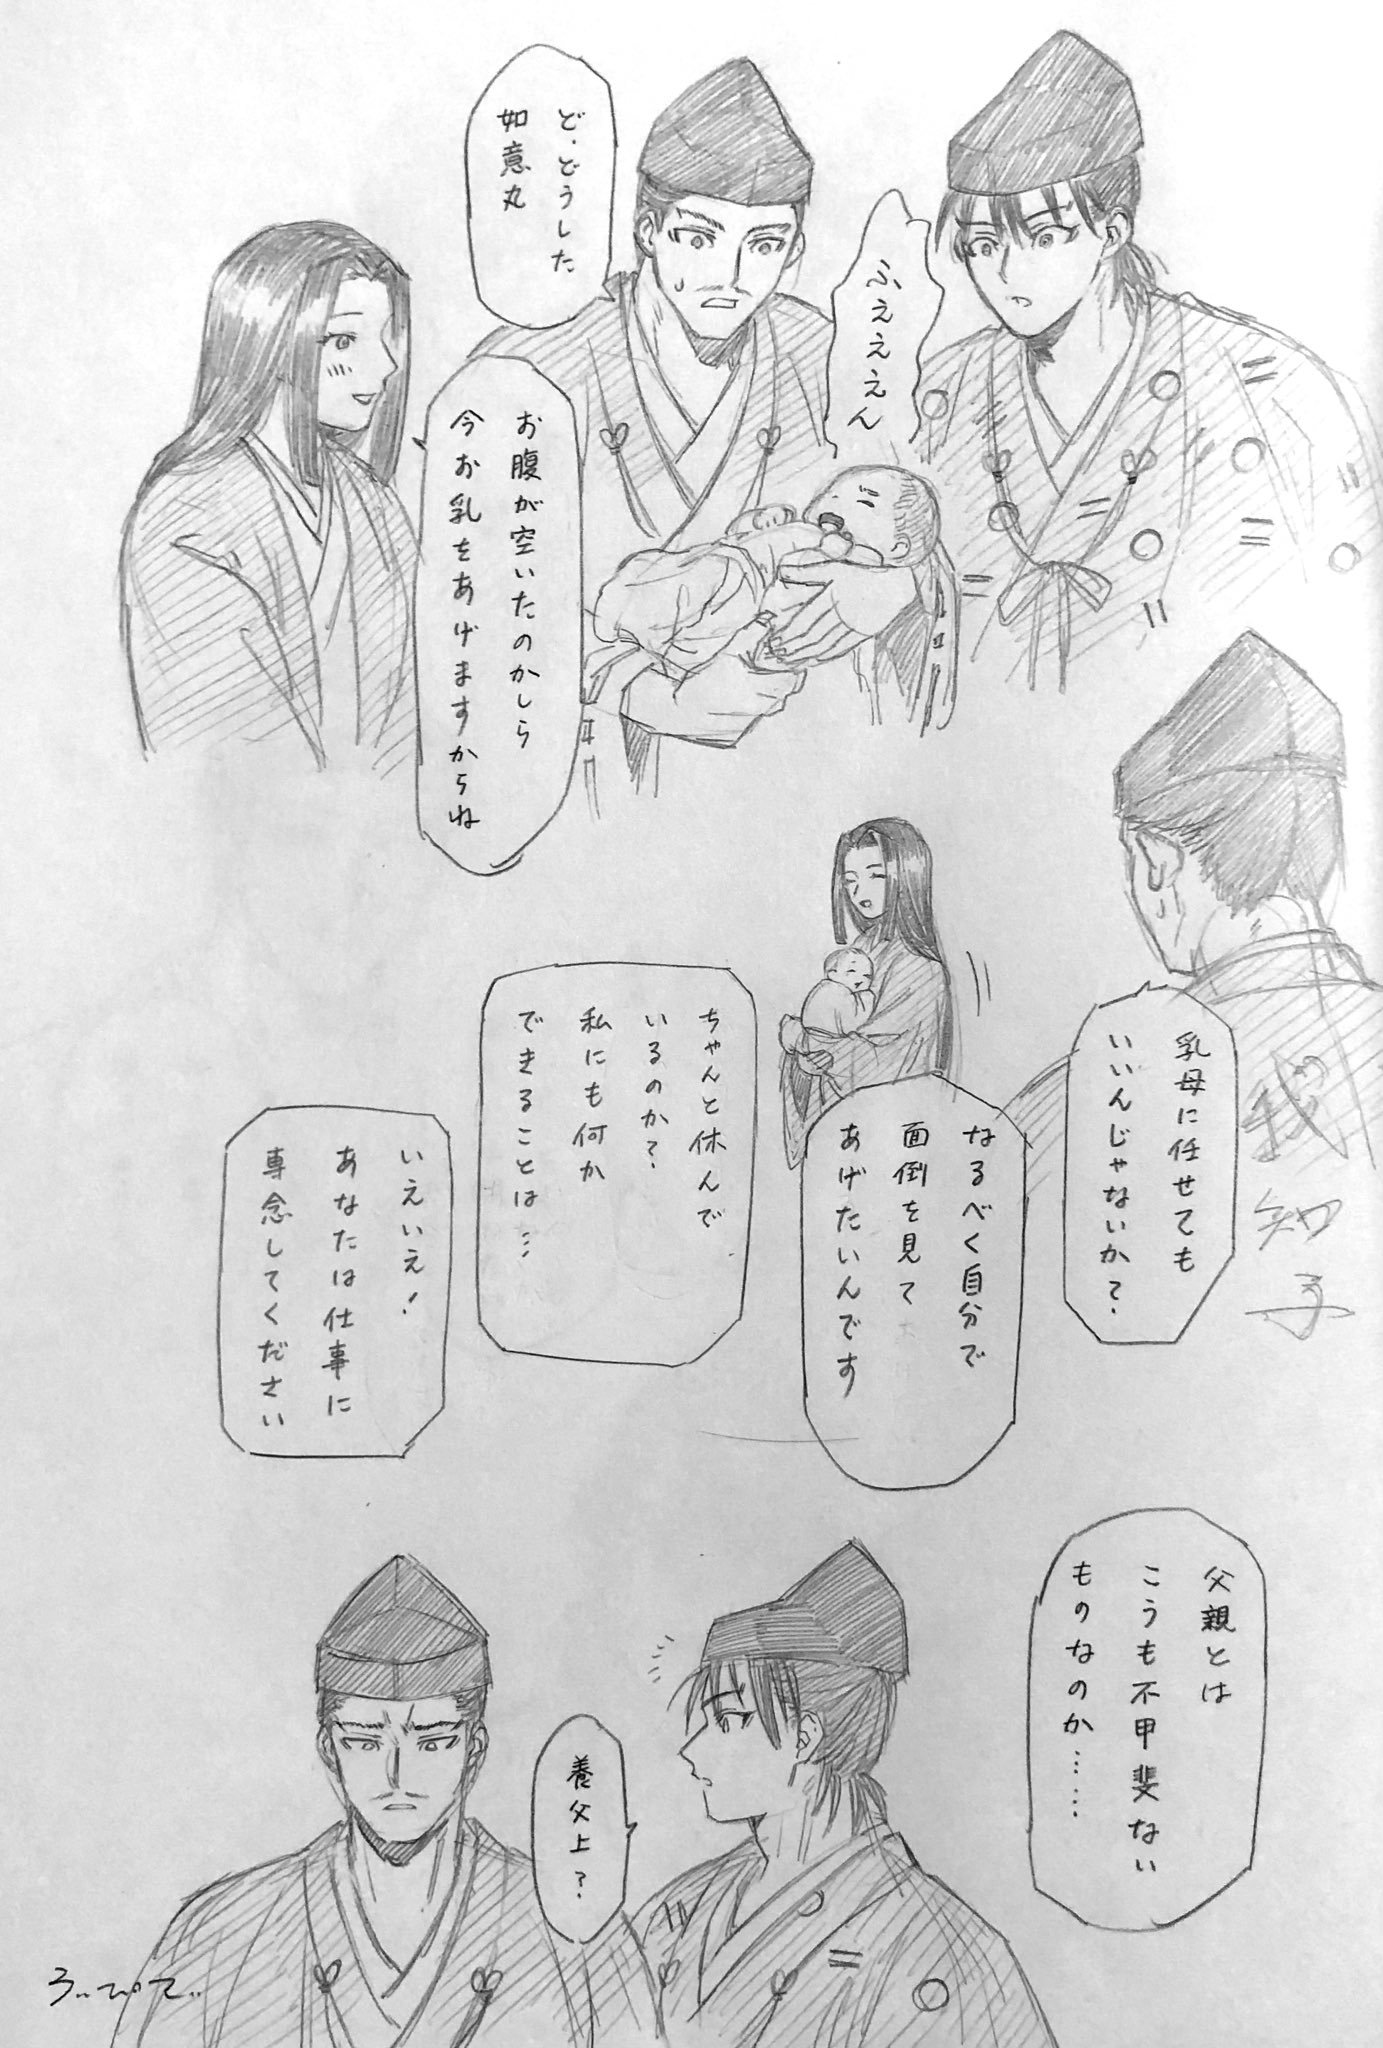 ふえええん
ど、どうした
如意丸
お腹が空いたのかしら
今お乳をあげますからね
乳母に任せても
いいんじゃないか？
なるべく自分で
面倒を見て
あげたいんです
ちゃんと休んで
いるのか？
私にも何か
できることは…
いえいえ！
あなたは仕事に
専念してください
父親とは
こうも不甲斐ない
ものなのか……
養父上？